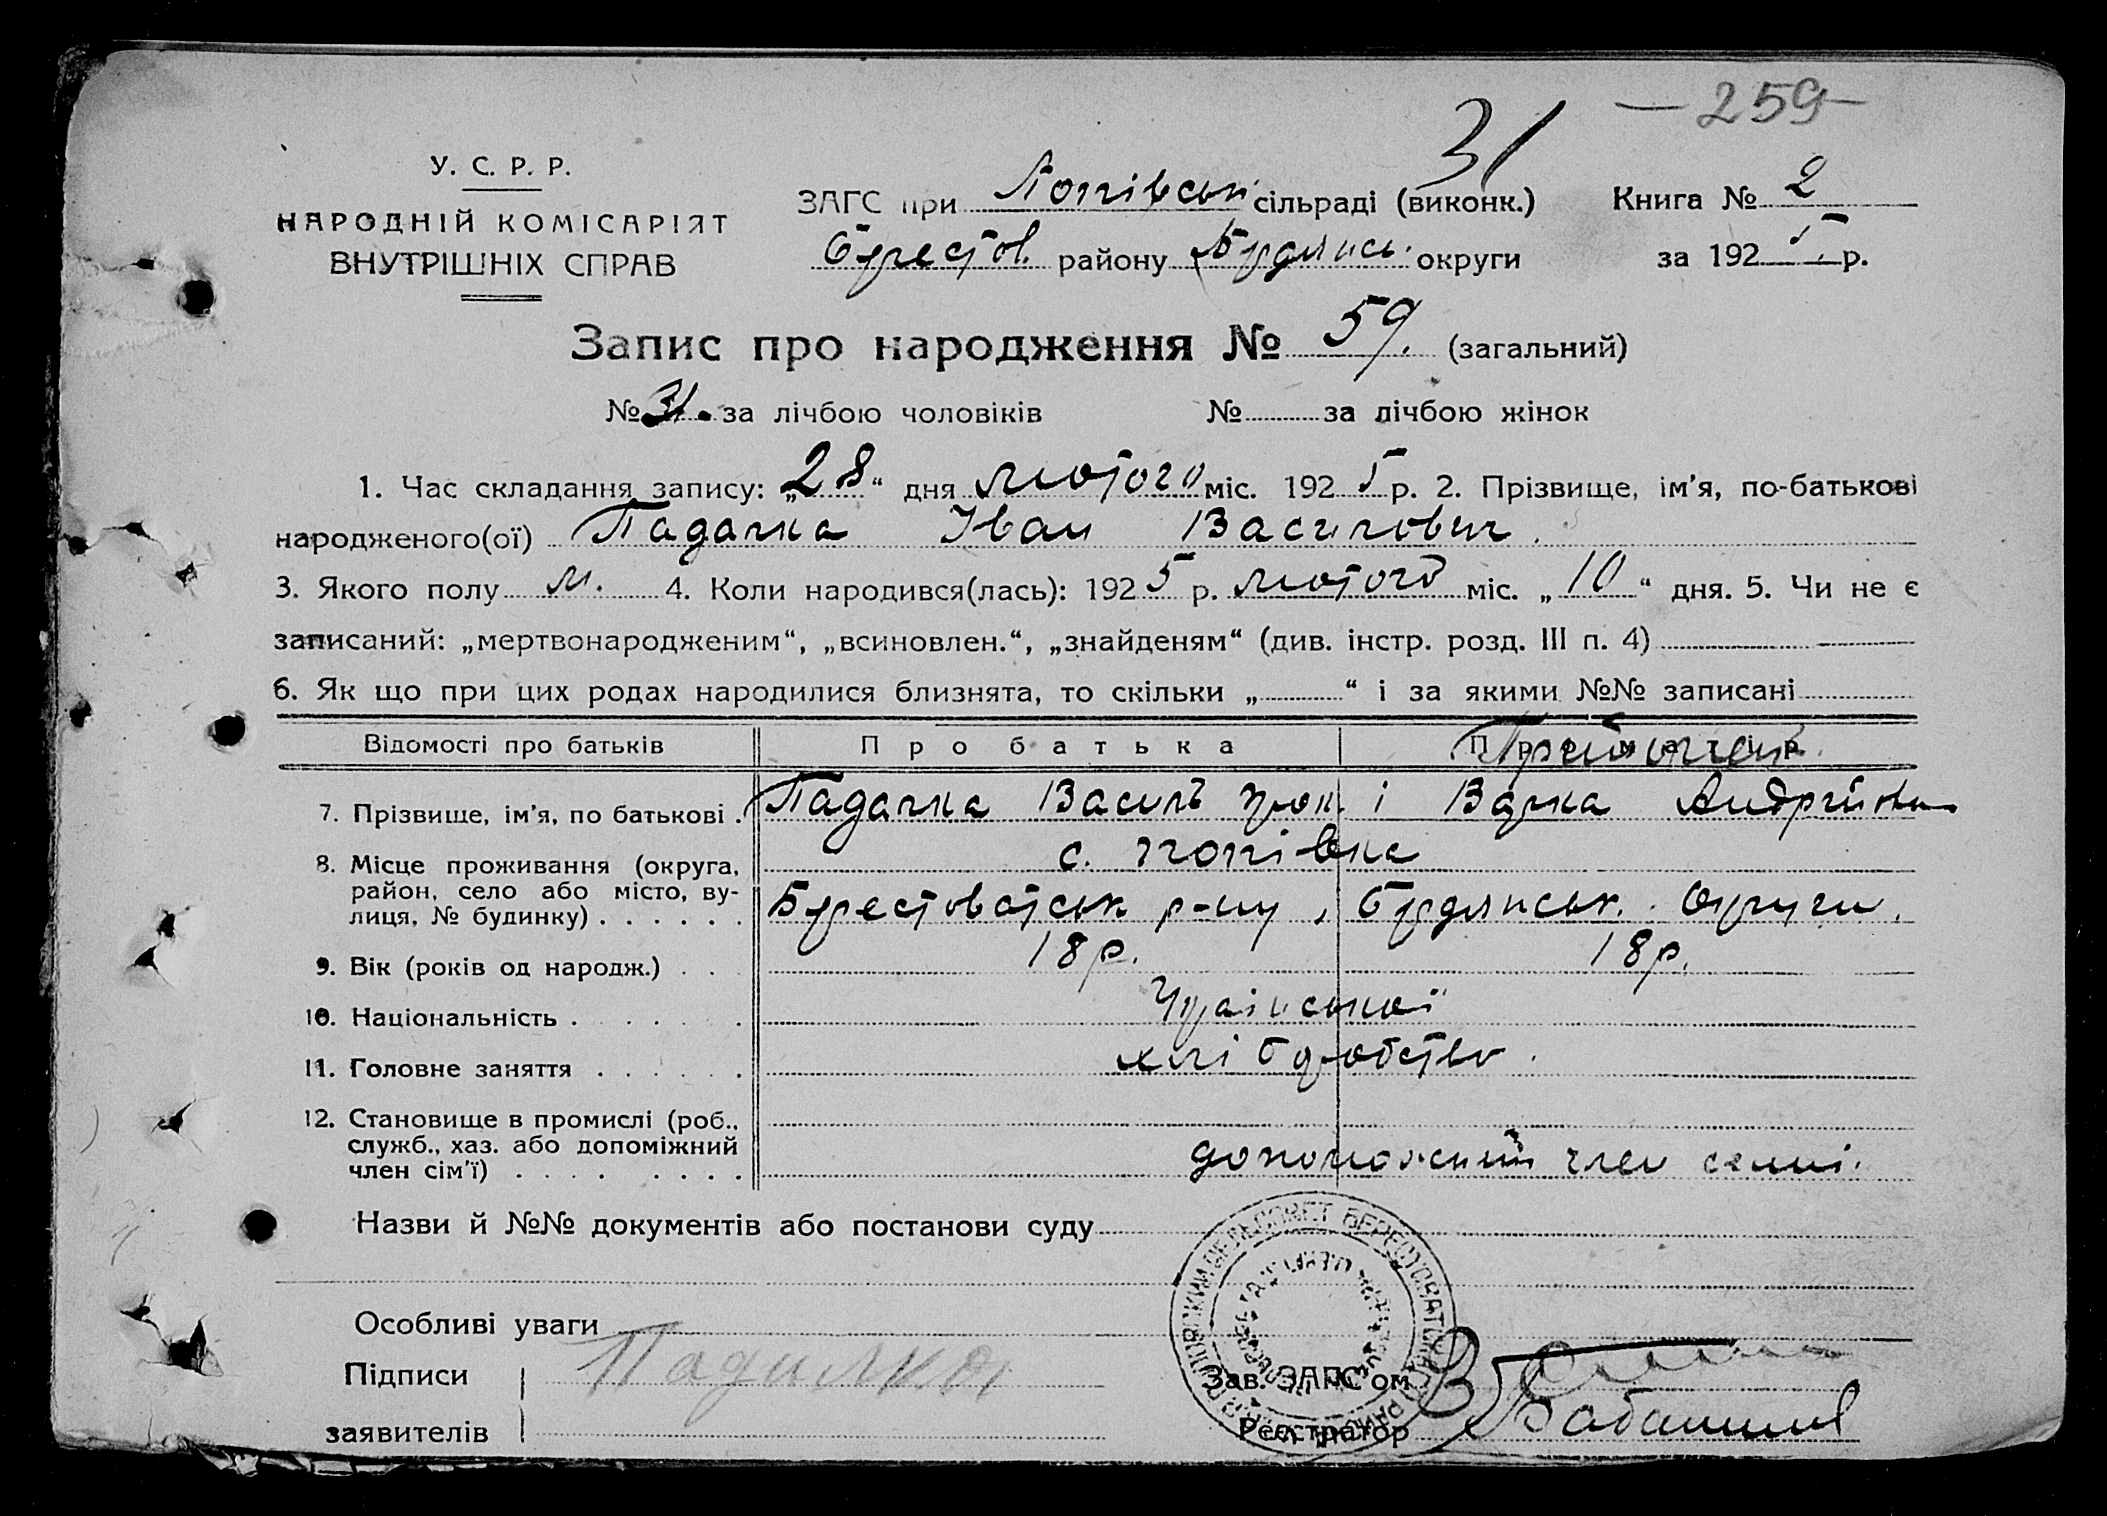 — 259 —
31
У. С. Р. Р.
НАРОДНІЙ КОМІСАРІЯТ
ВНУТРІШНІХ СПРАВ
ЗАГС при Попівськ. сільраді (виконк.)
Берестов. району Бердянськ. округи
Книга № 2
за 1925 р.
Запис про народження № 59. (загальний)
№ 31. за лічбою чоловіків № за лічбою жінок
1. Час складання запису: „28“ дня лютого міс. 1925 р. 2. Прізвище, ім'я, по-батькові
народженого(ої) Падалка Іван Василович.
3. Якого полу м. 4. Коли народився(лась): 1925 р. лютого міс. „10“ дня. 5. Чи не є
записаний: „мертвонародженим“, „всиновлен.“, „знайденям“ (див. інстр. розд. III п. 4)
6. Як що при цих родах народилися близнята, то скільки „ “ і за якими №№ записані
Відомості про батьків Про батька Про матір
7. Прізвище, ім'я, по батькові . Падалка Василь і Варка Андріївна
8. Місце проживання (округа, с. Попівка
район, село або місто, ву-
лиця, № будинку) . . . . . . Берестоватськ р-ну, Бердянськ. Округи.
9. Вік (років од народж.) . . . 18 р. 18 р.
10. Національність . . . . . . Української
11. Головне заняття . . . . . . хліборобство.
12. Становище в промислі (роб.,
служб., хаз. або допоміжний
член сім'ї) . . . . . . . . допоможний член семьї.
Назви й №№ документів або постанови суду
Особливі уваги
Підписи Падалка
заявителів
Зав. ЗАГС'ом
Реєстратор